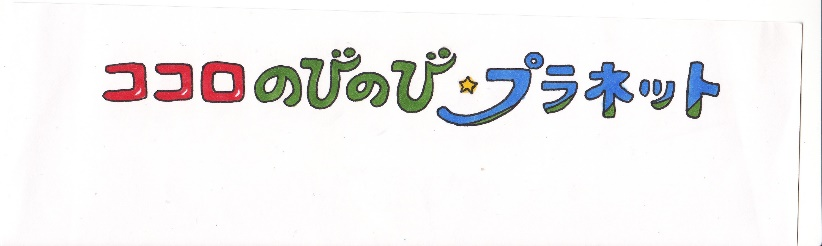 ココロのびのび★プラネット